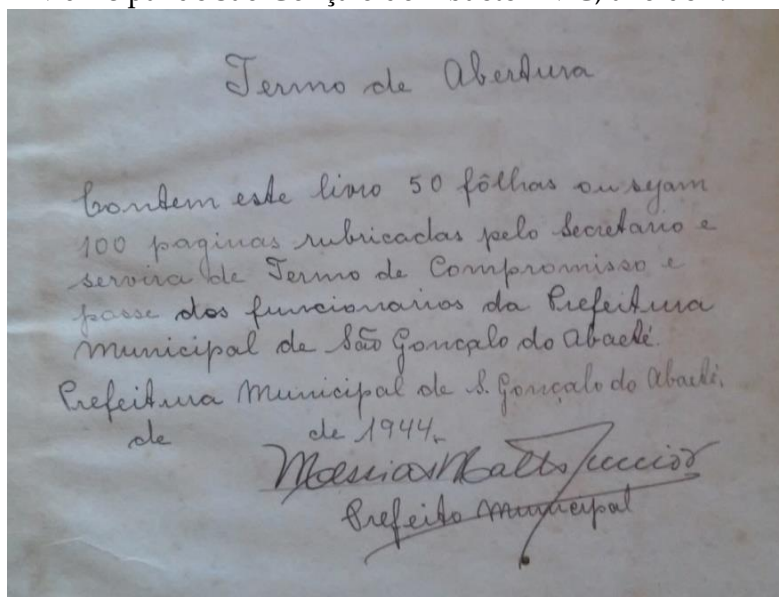 Termo de Abertura
Contem este livro 50 fôlhas ou sejam
100 paginas rubricadas pelo Secretario e
servira de Termo de Compromisso e
posse dos funcionarios da Prefeitura
Municipal de São Gonçalo do Abaeté.
Prefeitura Municipal de S. Gonçalo do Abaeté,
de de 1944.
Messias Mattos Junior
Prefeito Municipal